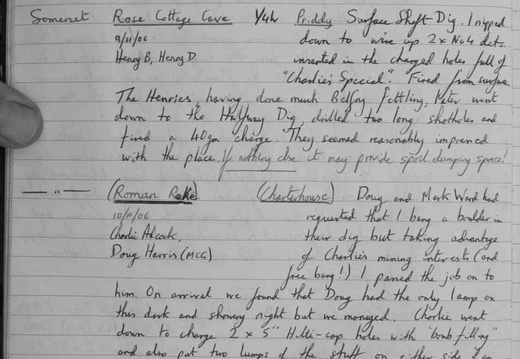 Somerset Rose Cottage Cave ¾hr Priddy Surface Shaft Dig. I nipped
9/11/06 down to wire up 2 x No4 dets.
Henry B, Henry D inserted in the charged holes full of
"Charlie's Special". Fired from surface.
The Henries, having done much Belfry fettling, later went
down to the Halfway Dig, drilled two long shotholes and
fired a 40gm charge. They seemed reasonably impressed
with the place. If nothing else it may provide spoil dumping space!
— " — (Roman Rake) (Charterhouse) Doug and Mark Ward had
10/11/06 requested that I bang a boulder in
Charlie Adcock, their dig but taking advantage
Doug Harris (MCG) of Charlie's mining interests (and
free bang!) I passed the job on to
him. On arrival we found that Doug had the only lamp on
this dark and showery night but we managed. Charlie went
down to charge 2 x 5" Hilti-cap holes with "bomb filling"
and also put two lumps of the stuff on the side